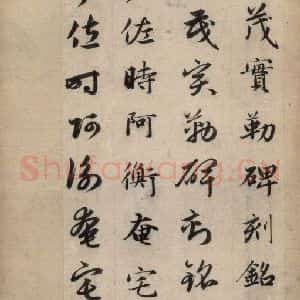 茂實勒碑刻銘
茂實勒碑刻銘
佐時阿衡奄宅
佐時阿衡奄宅